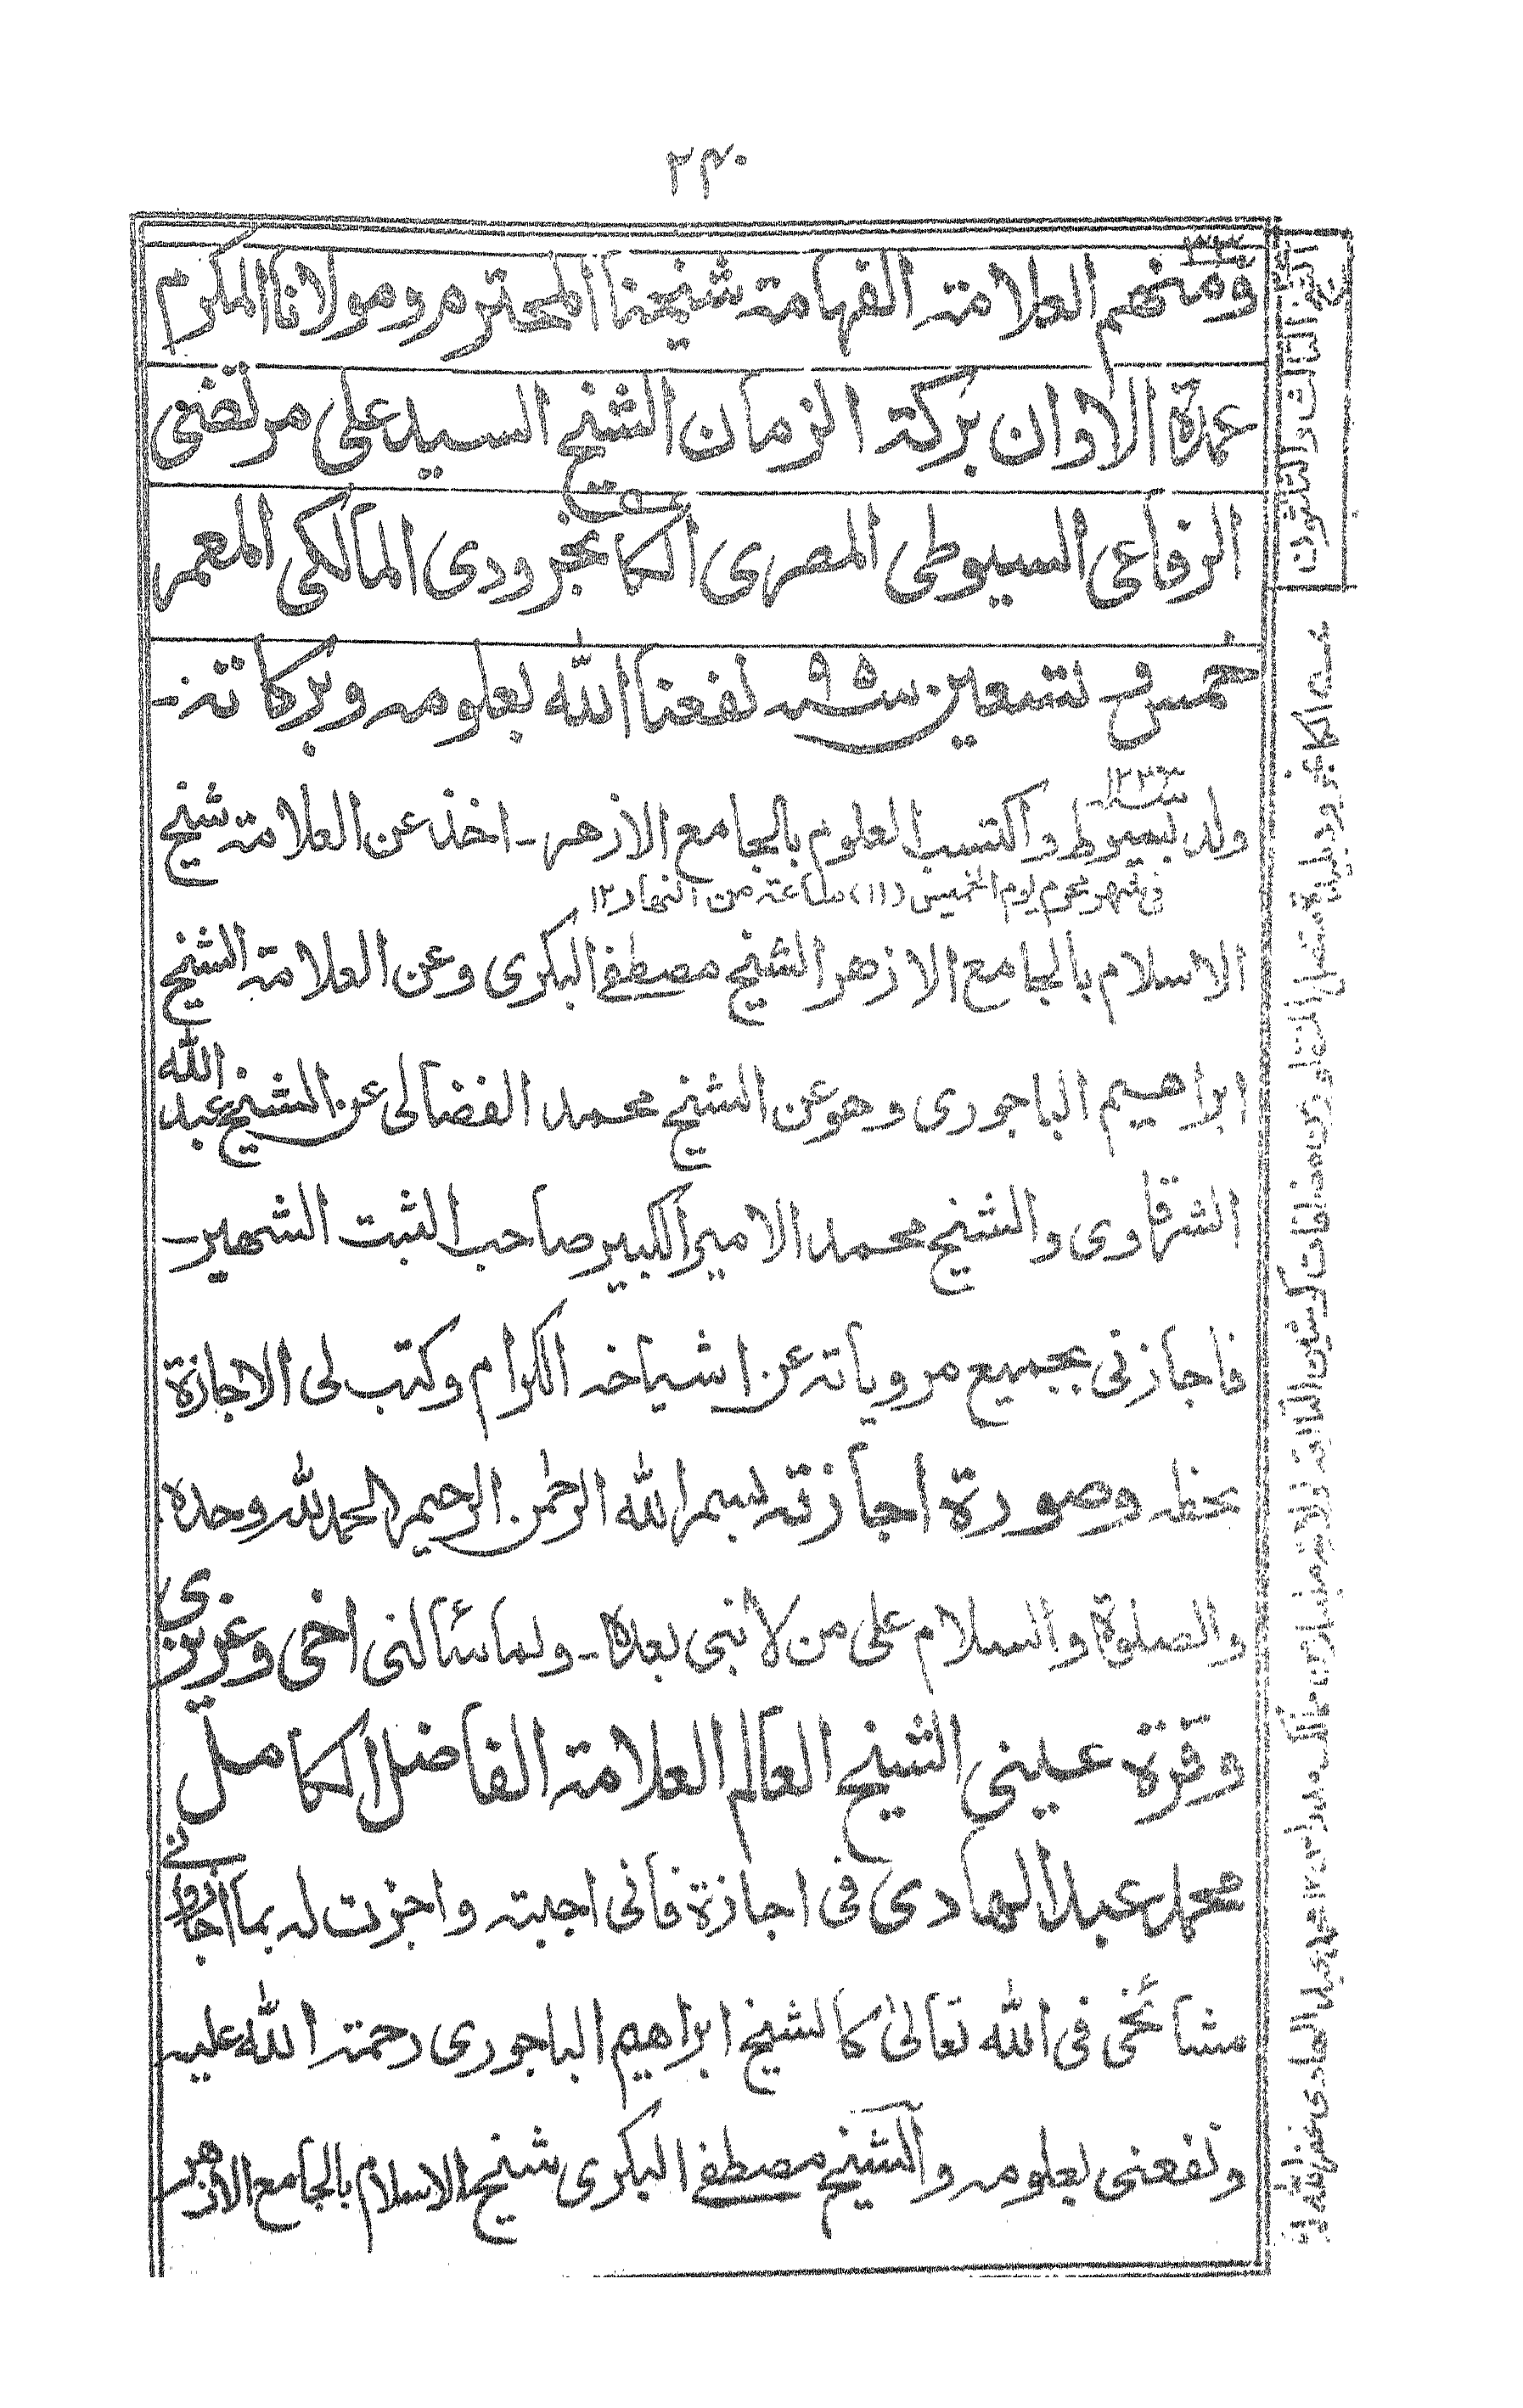 ٢٣٠
٣٣
ومنهم العلامة الفهامة شيخنا المحترم ومولانا المكرم
عمدة الاوان بركة الزمان الشيخ السيد على مرتضى
الرفاعى السيوطى المصرى الكانجرودى المالكى المعمر
خمس و تسعين سنه ٩٥ نفعنا الله بعلومه وبركاته -
ولد بسيوط واكتسب العلوم بالجامع الازهر - اخذ عن العلامة شيخ
فى شهر محرم يوم الخميس (١١) ساعة من النهار ١٢
الاسلام بالجامع الازهر الشيخ مصطفے البكرى وعن العلامة الشيخ
ابراهيم الباجورى وهو عن الشيخ محمد الفضالى عن الشيخ عبد الله
الشرقاوى والشيخ محمد الامير الكبير صاحب الثبت الشهير -
فاجازنى بجميع مروياته عن اشياخه الكرام وكتب لى الاجازة
بخطه وصورة اجازته بسم الله الرحمن الرحيم الحمد لله وحده
والصلوة والسلام على من لا نبى بعده - ولما سألنى اخى وعزيزى
وقرة عينى الشيخ العالم العلامة الفاضل الكامل
محمد عبد الهادى فى اجازة فانى اجبته واجزت له بما اجازونے
مشائخى فى الله تعالىٰ كالشيخ ابراهيم الباجورى رحمة الله عليه
ونفعنى بعلومه والشيخ مصطفے البكرى شيخ الاسلام بالجامع الازهر
الشيخ الثالث والثلثون